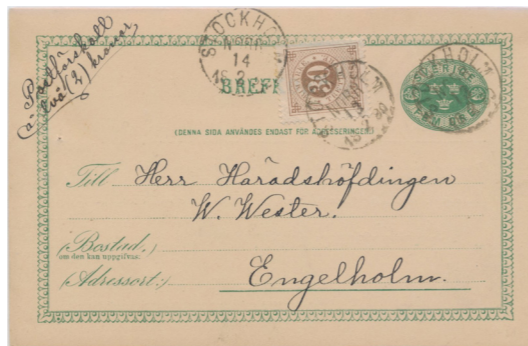 Postförskott
å två (2) kronor,
STOCKHOLM
NORR
14
BREF
30
SVERIGE
FEM ÖRE
(DENNA SIDA ANVÄNDES ENDAST FÖR ADRESSERINGEN.)
Till Herr Häradshöfdingen
W. Wester.
(Bostad.)
om den kan uppgifvas:
(Adressort:) Engelholm.